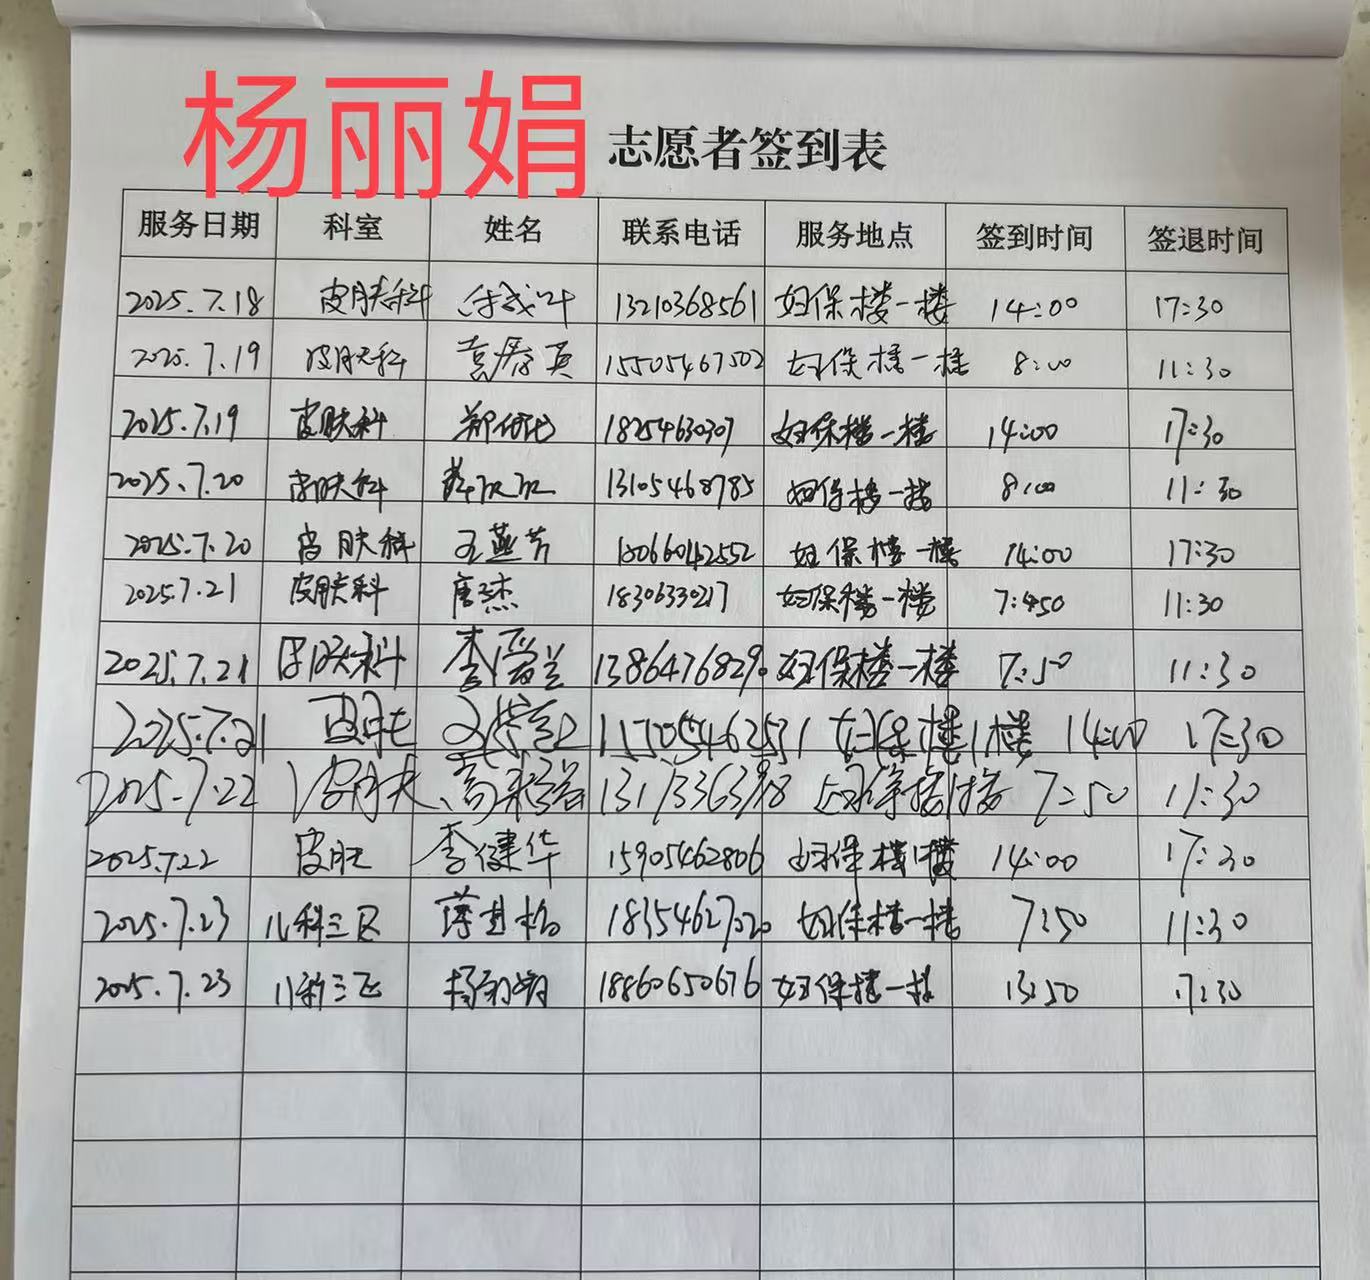 杨丽娟
志愿者签到表
服务日期 科室 姓名 联系电话 服务地点 签到时间 签退时间
2025.7.18 皮肤科 13210368561 妇保楼一楼 14:00 17:30
2025.7.19 皮肤科 15505467502 妇保楼一楼 8:00 11:30
2025.7.19 皮肤科 18254630307 妇保楼一楼 14:00 17:30
2025.7.20 皮肤科 13105468785 妇保楼一楼 8:00 11:30
2025.7.20 皮肤科 王燕芳 18066042552 妇保楼一楼 14:00 17:30
2025.7.21 皮肤科 唐杰 18306330217 妇保楼一楼 7:450 11:30
2025.7.21 皮肤科 13864768290 妇保楼一楼 7:50 11:30
2025.7.21 皮肤 妇保楼1楼 14:00 17:30
2025.7.22 皮肤 7:50 11:30
2025.7.22 皮肤 李健华 15905462806 妇保楼1楼 14:00 17:30
2025.7.23 儿科三区 18354627020 妇保楼一楼 7:50 11:30
2025.7.23 儿科三区 18860650676 妇保楼一楼 13:50 17:30